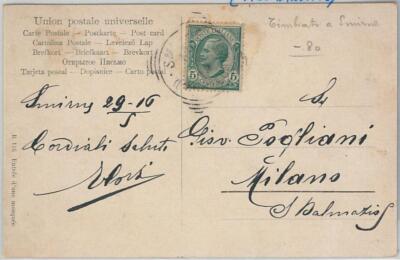 Union postale universelle
Carte Postale — Postkarte — Post card
Cartolina Postale — Levelező Lap
Brefkort — Briefkaart — Brevkort
Открытое Письмо
Tarjeta postal — Dopisnice — Carta postal
Timbrato a Smirne
— 80
5 5
Smirne 29-16
5
Cordiali saluti
Sr
Giov. Pogliani
Milano
S Dalmazio 5